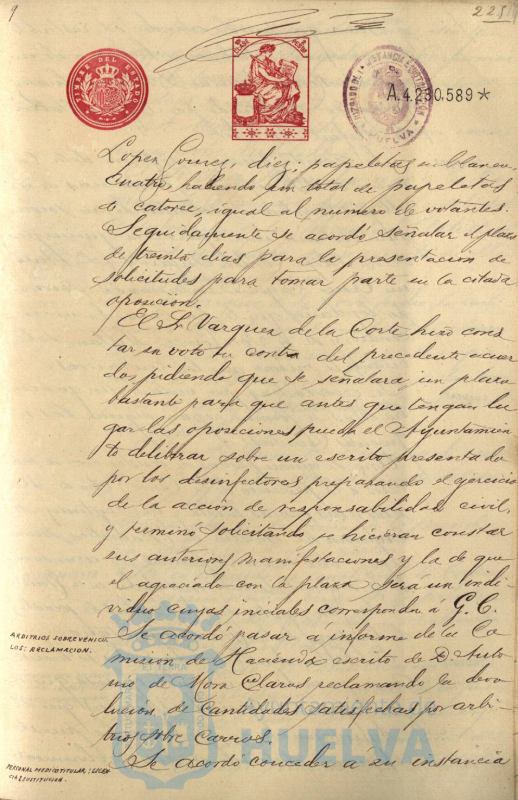 225
TIMBRE DEL ESTADO
JUZGADO DE 1ª INSTANCIA E INSTRUCCIÓN
HUELVA
A.4.230.589*
Lopez Gomez, diez; papeletas en blanco,
cuatro, haciendo un total de papeletas
de catorce, igual al numero de votantes.
Seguidamente se acordó señalar el plazo
de treinta dias para la presentacion de
solicitudes para tomar parte en la citada
oposición.
El Sr Vazquez de la Corte hizo cons
tar su voto en contra del precedente acuer
do, pidiendo que se señalara un plazo
bastante para que antes que tengan lu
gar las oposiciones pueda el Ayuntamien
to deliberar sobre un escrito presentado
por los desinfectores preparando el ejercicio
de la acción de responsabilidad civil,
y terminó solicitando se hicieran constar
sus anteriores manifestaciones y la de que
el agraciado con la plaza será un indi
viduo cuyas iniciales correspondan á G. C.
ARBITRIOS SOBRE VEHICU
LOS: RECLAMACION.
Se acordó pasar a informe de la Co
mision de Hacienda escrito de D. Anto
nio de Mora Claros reclamando la devo
lucion de Cantidades satisfechas por arbi
trios sobre Carros.
HUELVA
PERSONAL MEDICO TITULAR: LICEN
CIA Y SUSTITUCION.
Se acordó conceder á su instancia